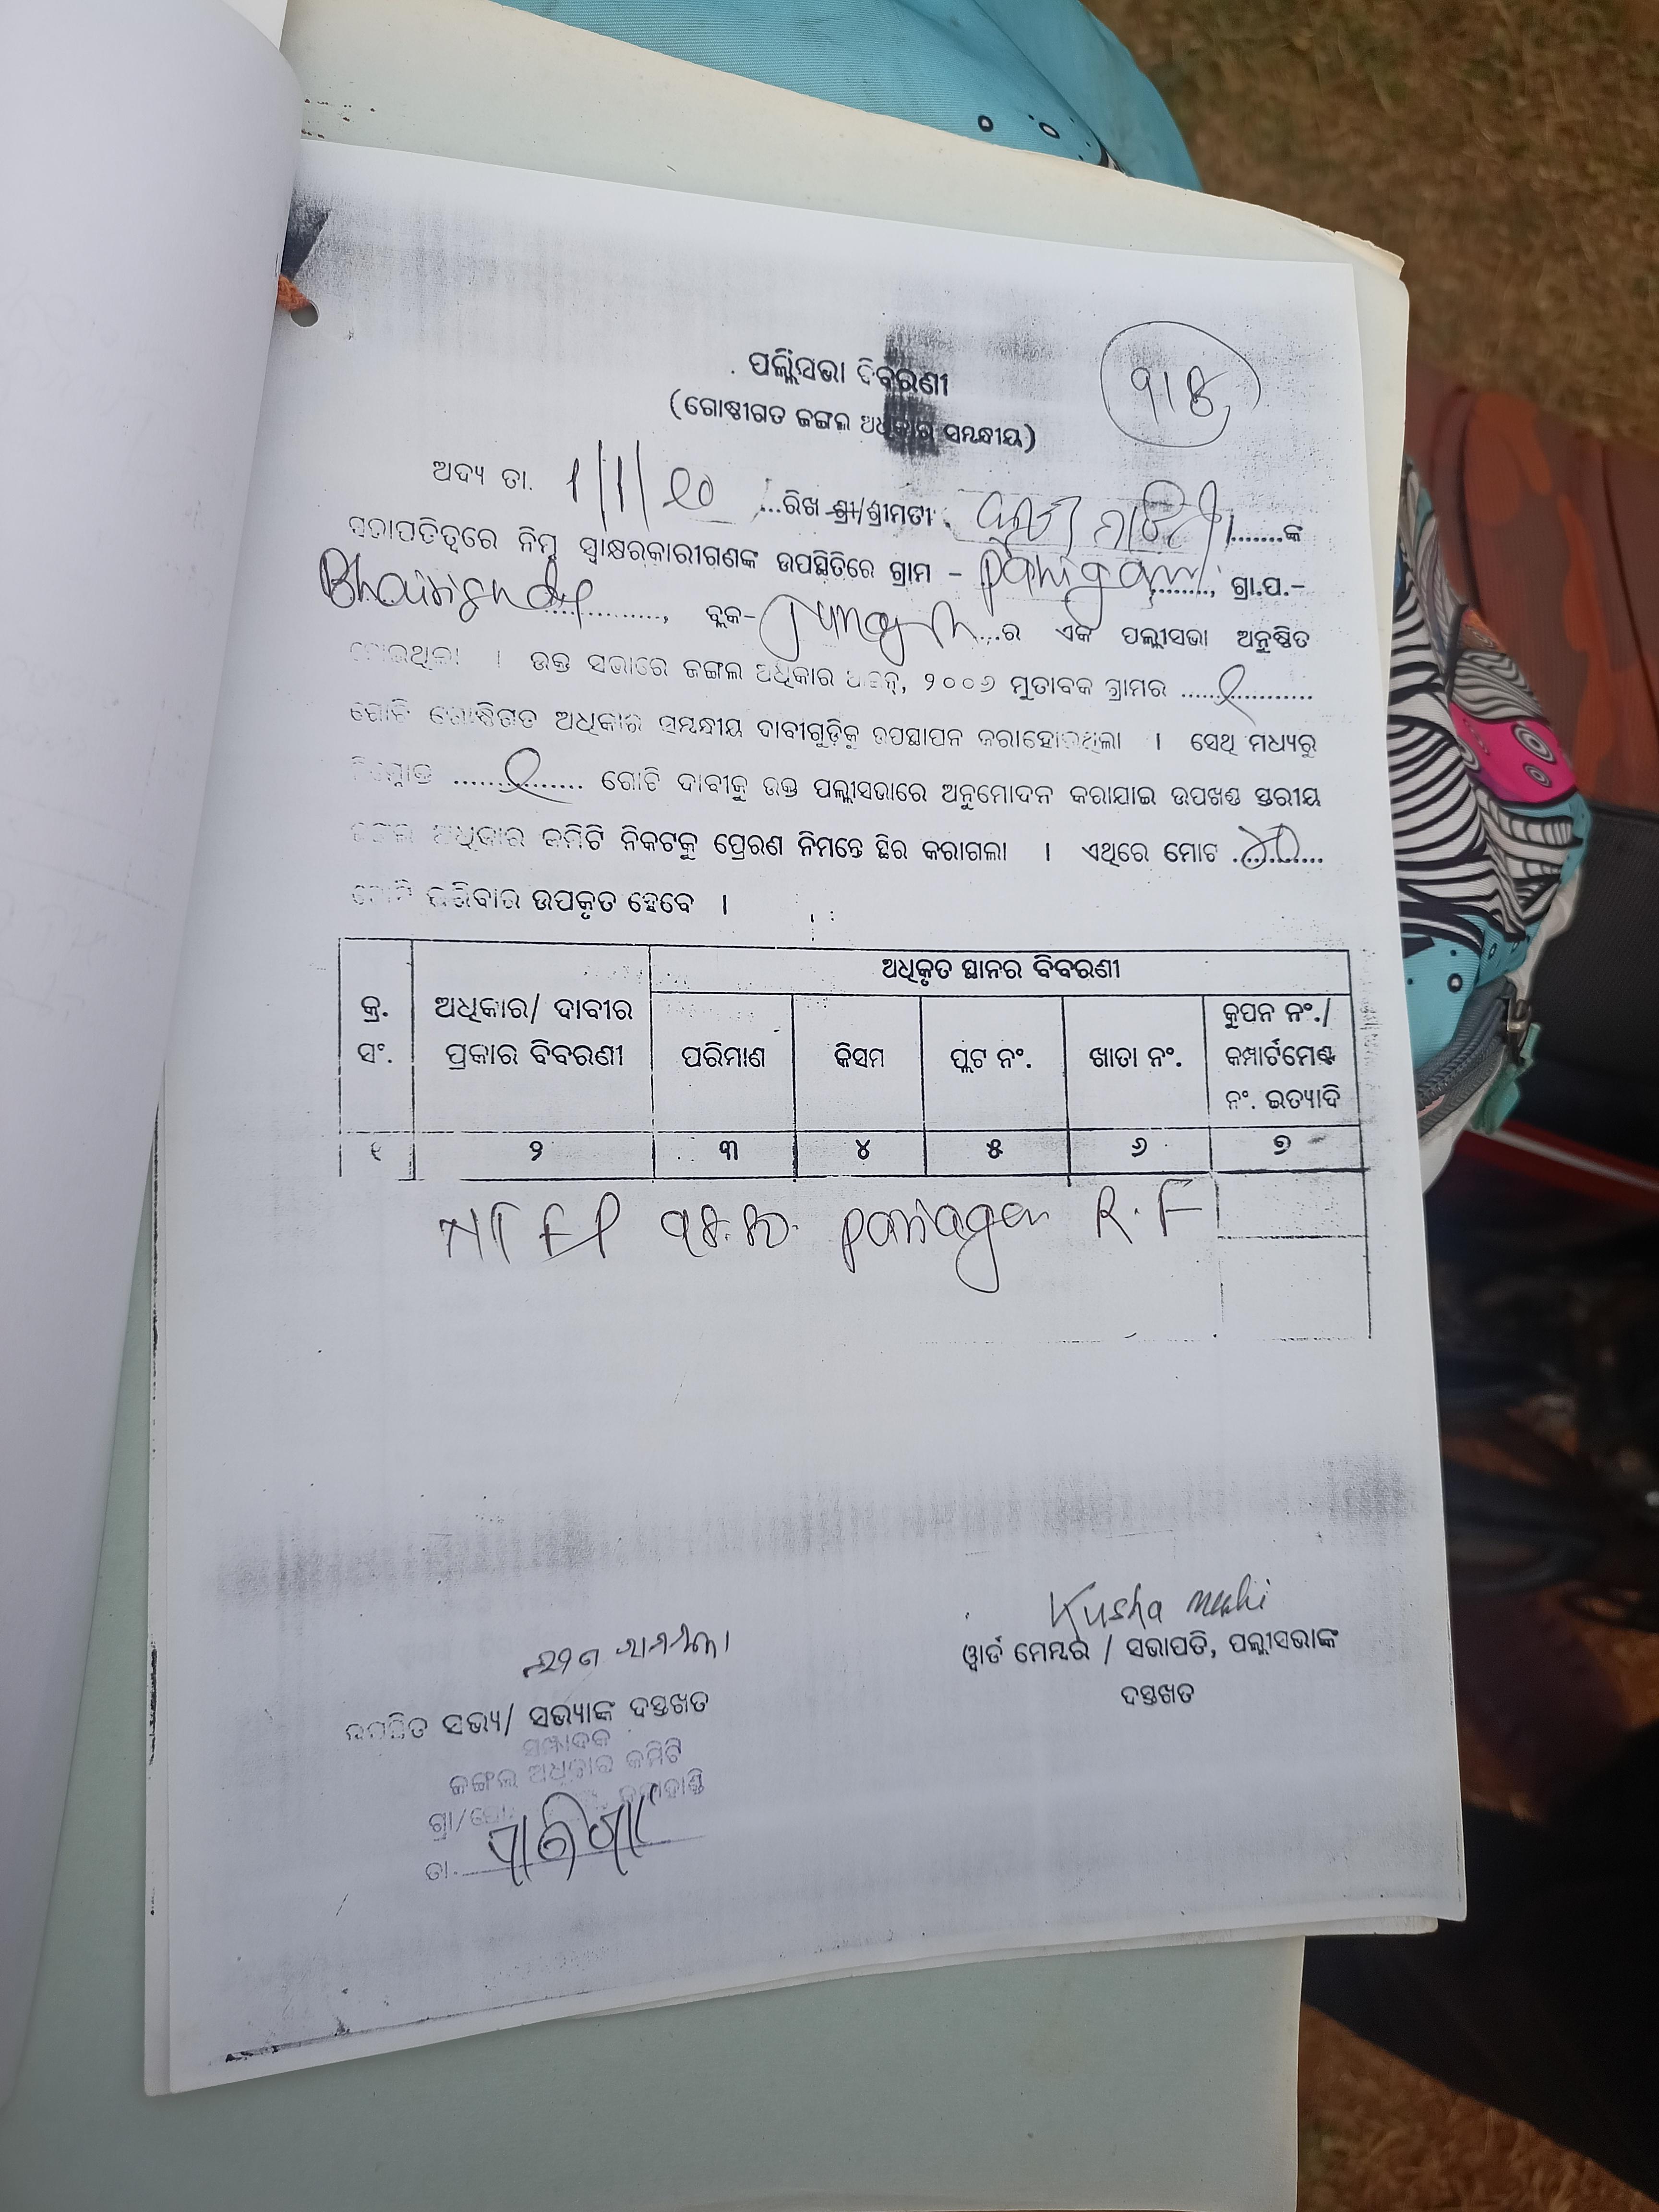 ପଲ୍ଲୀସଭା ବିବରଣୀ
(ଗୋଷ୍ଠୀଗତ ଜଙ୍ଗଲ ଅଧିକାର ସମ୍ବନ୍ଧୀୟ)
ଅଦ୍ୟ ତା. ...ରିଖ ଶ୍ରୀ/ଶ୍ରୀମତୀ .......ଙ୍କ
ସଭାପତିତ୍ୱରେ ନିମ୍ନ ସ୍ୱାକ୍ଷରକାରୀଗଣଙ୍କ ଉପସ୍ଥିତିରେ ଗ୍ରାମ – Panigam ........, ଗ୍ରା.ପ.–
............., ବ୍ଲକ– ....ର ଏକ ପଲ୍ଲୀସଭା ଅନୁଷ୍ଠିତ
ହୋଇଥିଲା । ଉକ୍ତ ସଭାରେ ଜଙ୍ଗଲ ଅଧିକାର ଆଇନ୍, ୨୦୦୬ ମୁତାବକ ଗ୍ରାମର ....................
ଗୋଟି ଗୋଷ୍ଠିଗତ ଅଧିକାର ସମ୍ବନ୍ଧୀୟ ଦାବୀଗୁଡ଼ିକୁ ଉପସ୍ଥାପନ କରାହୋଇଥିଲା । ସେଥି ମଧ୍ୟରୁ
ନିମ୍ନୋକ୍ତ .................. ଗୋଟି ଦାବୀକୁ ଉକ୍ତ ପଲ୍ଲୀସଭାରେ ଅନୁମୋଦନ କରାଯାଇ ଉପଖଣ୍ଡ ସ୍ତରୀୟ
ଜଙ୍ଗଲ ଅଧିକାର କମିଟି ନିକଟକୁ ପ୍ରେରଣ ନିମନ୍ତେ ସ୍ଥିର କରାଗଲା । ଏଥିରେ ମୋଟ ............
ଗୋଟି ପରିବାର ଉପକୃତ ହେବେ ।
ଅଧିକୃତ ସ୍ଥାନର ବିବରଣୀ
କ୍ର. ସଂ.
ଅଧିକାର/ ଦାବୀର ପ୍ରକାର ବିବରଣୀ
ପରିମାଣ
କିସମ
ପ୍ଲଟ ନଂ.
ଖାତା ନଂ.
କୁପନ ନଂ./ କମ୍ପାର୍ଟମେଣ୍ଟ ନଂ. ଇତ୍ୟାଦି
୧ ୨ ୩ ୪ ୫ ୬ ୭
NTFP R.F
Kusha
ୱାର୍ଡ ମେମ୍ବର / ସଭାପତି, ପଲ୍ଲୀସଭାଙ୍କ
ଦସ୍ତଖତ
ଉପସ୍ଥିତ ସଭ୍ୟ/ ସଭ୍ୟାଙ୍କ ଦସ୍ତଖତ
ସମ୍ପାଦକ
ଜଙ୍ଗଲ ଅଧିକାର କମିଟି
ଗ୍ରା/ପୋ:
ତା.